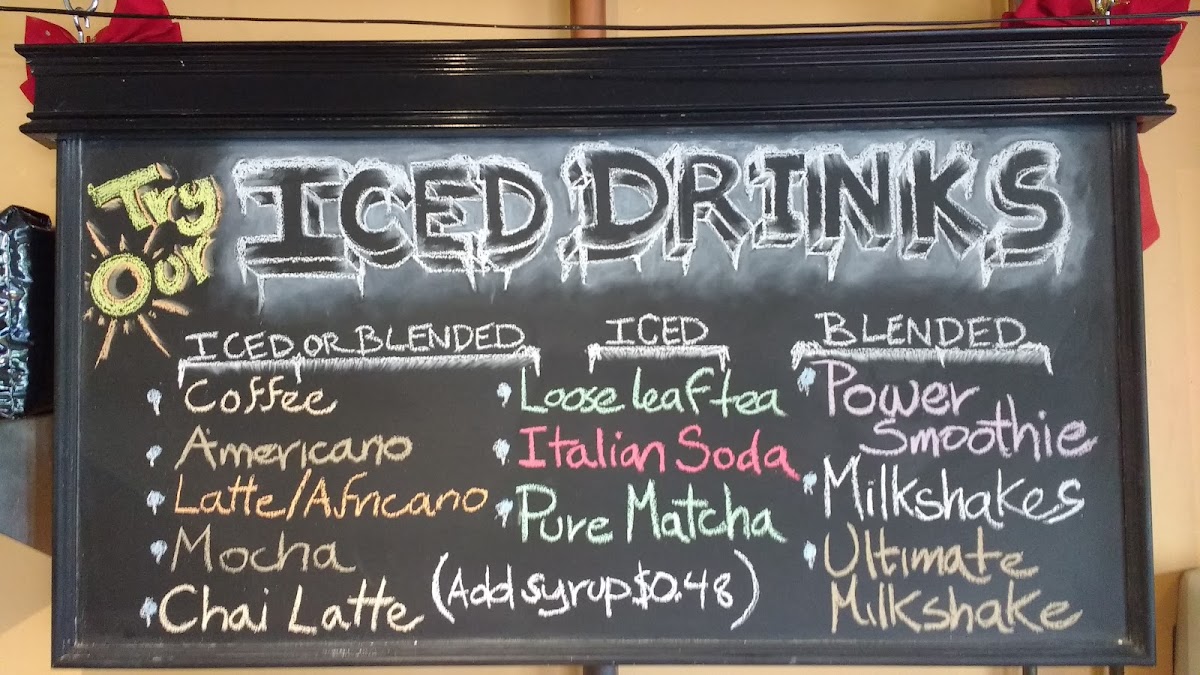 Try
Our
ICED DRINKS
ICED OR BLENDED
Coffee
Americano
Latte/Africano
Mocha
Chai Latte
ICED
Loose leaf tea
Italian Soda
Pure Matcha
(Add syrup $0.48)
BLENDED
Power
Smoothie
Milkshakes
Ultimate
Milkshake